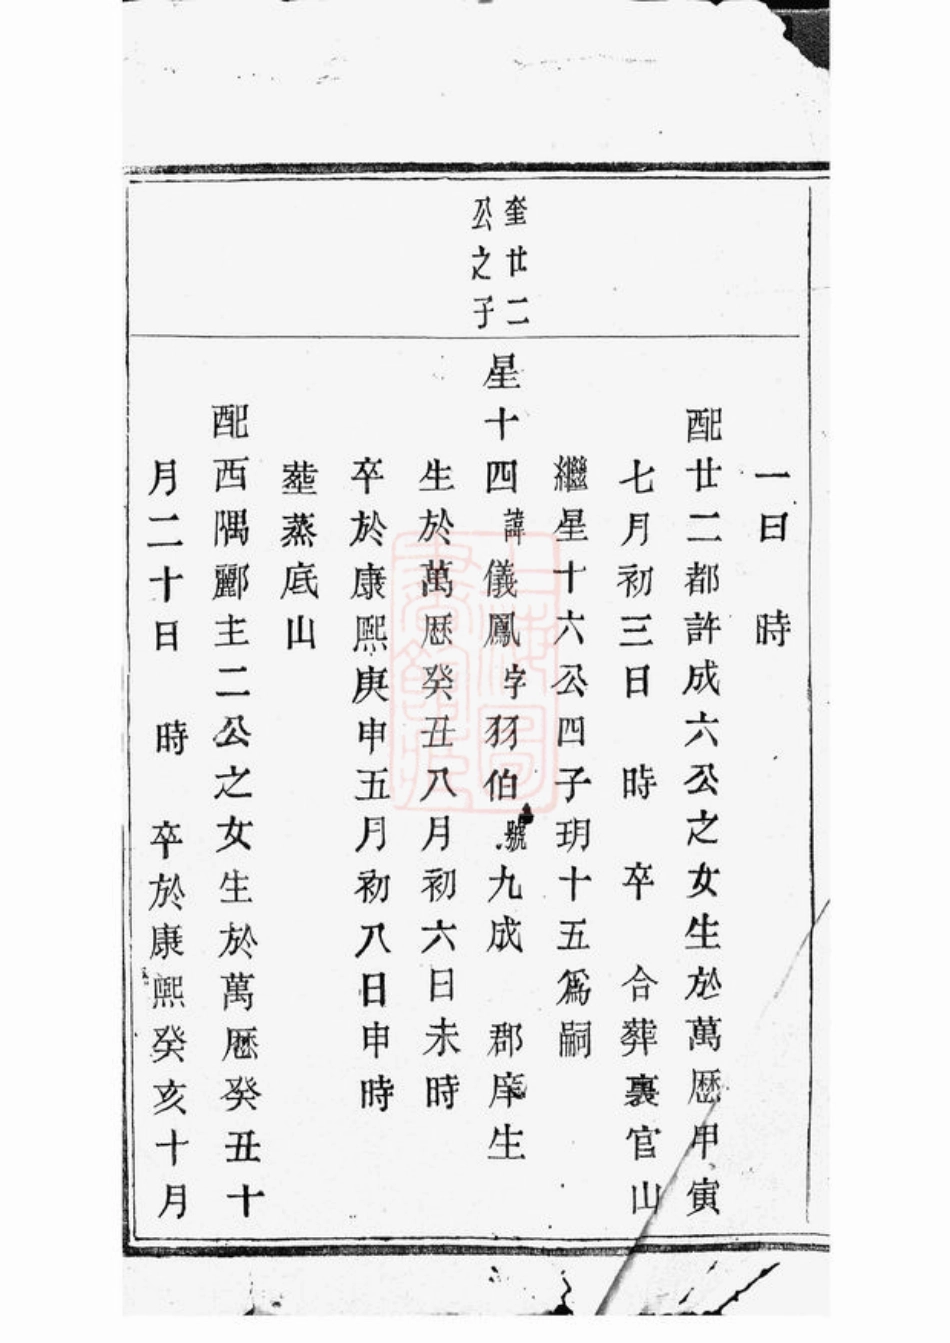 一日　時
配廿二都許成六公之女生於萬歷甲寅
七月初三日　時　卒　合葬裏官山
繼星十六公四子玥十五爲嗣
奎廿二
公之子
星十四諱儀鳳字羽伯號九成　郡庠生
生於萬歷癸丑八月初六日未時
卒於康熙庚申五月初八日申時
塟蒸底山
配西隅酈主二公之女生於萬歷癸丑十
月二十日　時　卒於康熙癸亥十月